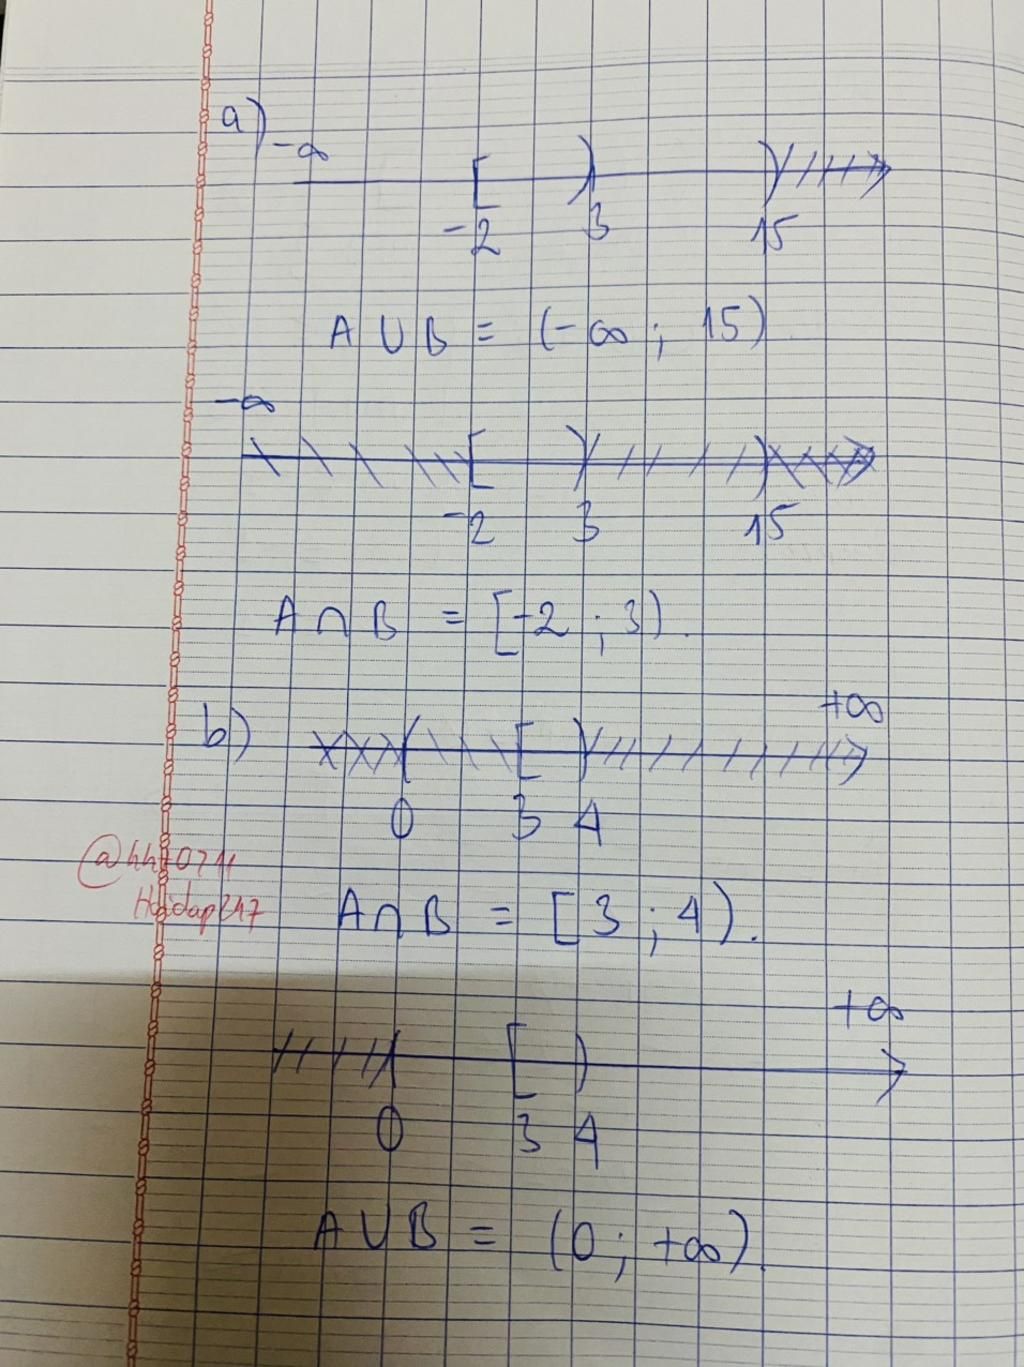 a)
-∞
-2 3 15
A ∪ B = (-∞ ; 15)
-∞
-2 3 15
A ∩ B = [-2 ; 3).
+∞
b)
0 3 4
@hht0711
Hoidap247
A ∩ B = [3 ; 4).
+∞
0 3 4
A ∪ B = (0 ; +∞)